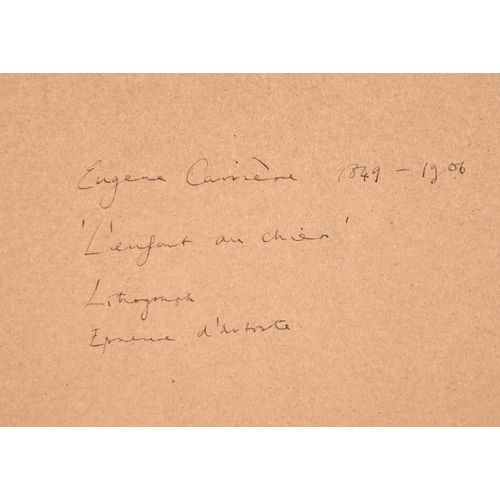 Eugene Carrière 1849 - 1906
'L'enfant au chien'
Lithograph
Epreuve d'artiste